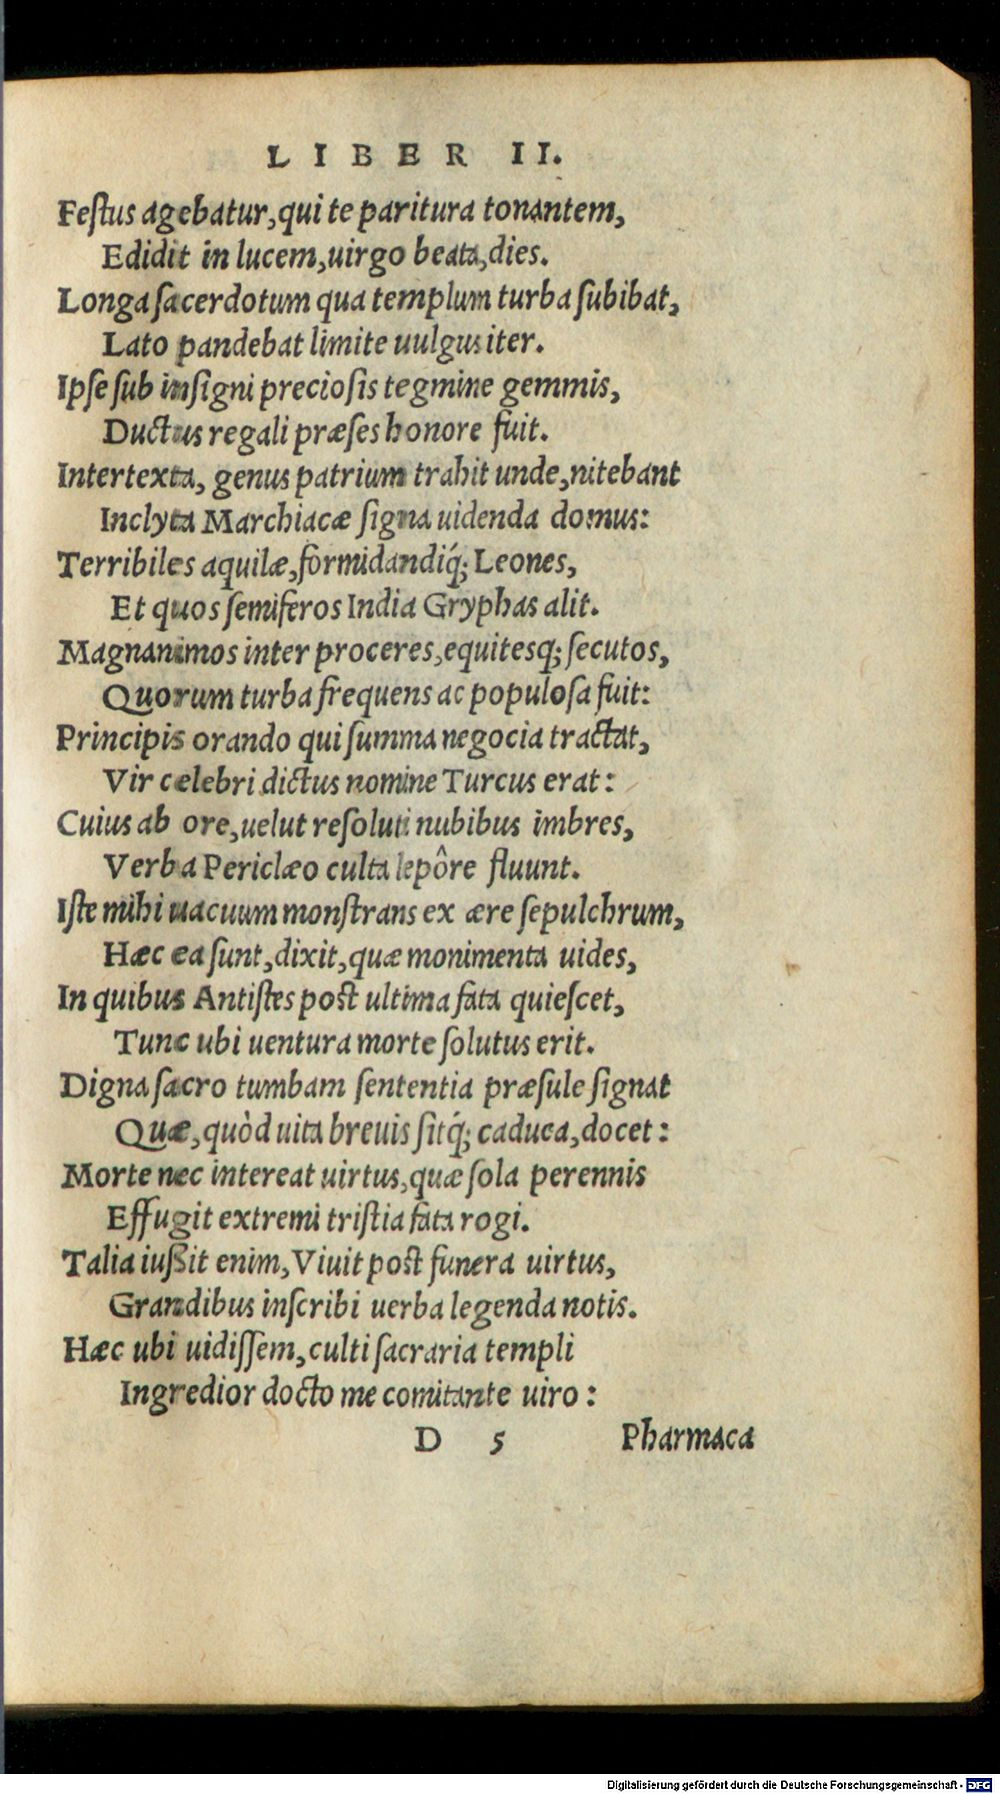 LIBER II.
Festus agebatur, qui te paritura tonantem,
Edidit in lucem, uirgo beata, dies.
Longa sacerdotum qua templum turba subibat,
Lato pandebat limite uulgus iter.
Ipse sub insigni preciosis tegmine gemmis,
Ductus regali præses honore fuit.
Intertexta, genus patrium trahit unde, nitebant
Inclyta Marchiacæ signa uidenda domus:
Terribiles aquilæ, formidandiq́; Leones,
Et quos semiferos India Gryphas alit.
Magnanimos inter proceres, equitesq; secutos,
Quorum turba frequens ac populosa fuit:
Principis orando qui summa negocia tractat,
Vir celebri dictus nomine Turcus erat:
Cuius ab ore, uelut resoluti nubibus imbres,
Verba Periclæo culta lepôre fluunt.
Iste mihi uacuum monstrans ex ære sepulchrum,
Hæc ea sunt, dixit, quæ monimenta uides,
In quibus Antistes post ultima fata quiescet,
Tunc ubi uentura morte solutus erit.
Digna sacro tumbam sententia præsule signat
Quæ, quòd uita breuis sitq́; caduca, docet:
Morte nec intereat uirtus, quæ sola perennis
Effugit extremi tristia fata rogi.
Talia iußit enim, Viuit post funera uirtus,
Grandibus inscribi uerba legenda notis.
Hæc ubi uidissem, culti sacraria templi
Ingredior docto me comitante uiro:
D 5 Pharmaca
Digitalisierung gefördert durch die Deutsche Forschungsgemeinschaft - DFG